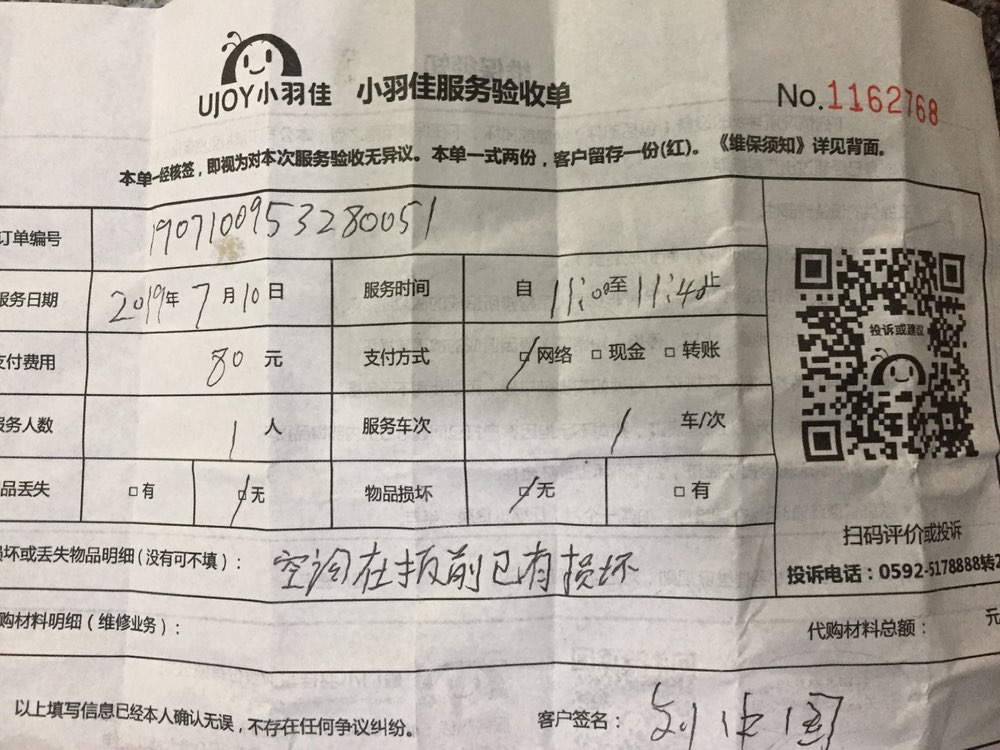 UJOY小羽佳 小羽佳服务验收单 No.1162768
本单一经核签，即视为对本次服务验收无异议。本单一式两份，客户留存一份(红)。《维保须知》详见背面。
订单编号 1907100953280051
服务日期 2019年 7月10日 服务时间 自 11:00至 11:40止
支付费用 80 元 支付方式 □网络 □现金 □转账
服务人数 1 人 服务车次 1 车/次
品丢失 □有 □无 物品损坏 □无 □有
投诉或建议
损坏或丢失物品明细(没有可不填)： 空调在拆前已有损坏
扫码评价或投诉
投诉电话：0592-5178888转2
购材料明细(维修业务)： 代购材料总额： 元
以上填写信息已经本人确认无误，不存在任何争议纠纷。 客户签名：